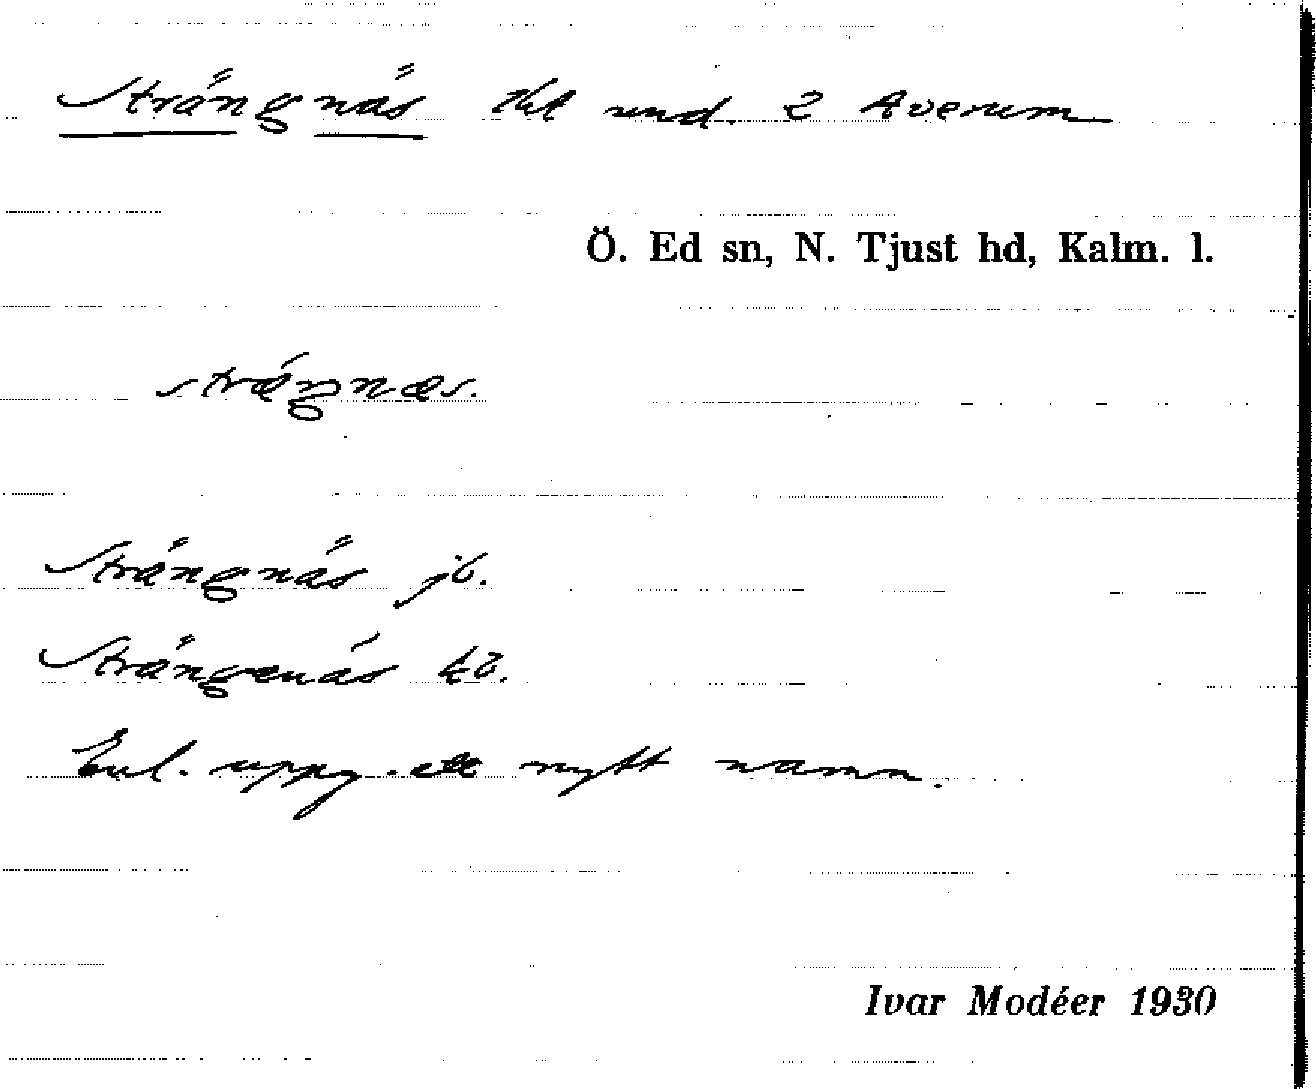 Strängnäs tkt und. 2 Averum
Ö. Ed sn, N. Tjust hd, Kalm. l.
Strängnäs jb.
Strängenäs kb.
Enl. uppg. ett nytt namn.
Ivar Modéer 1930